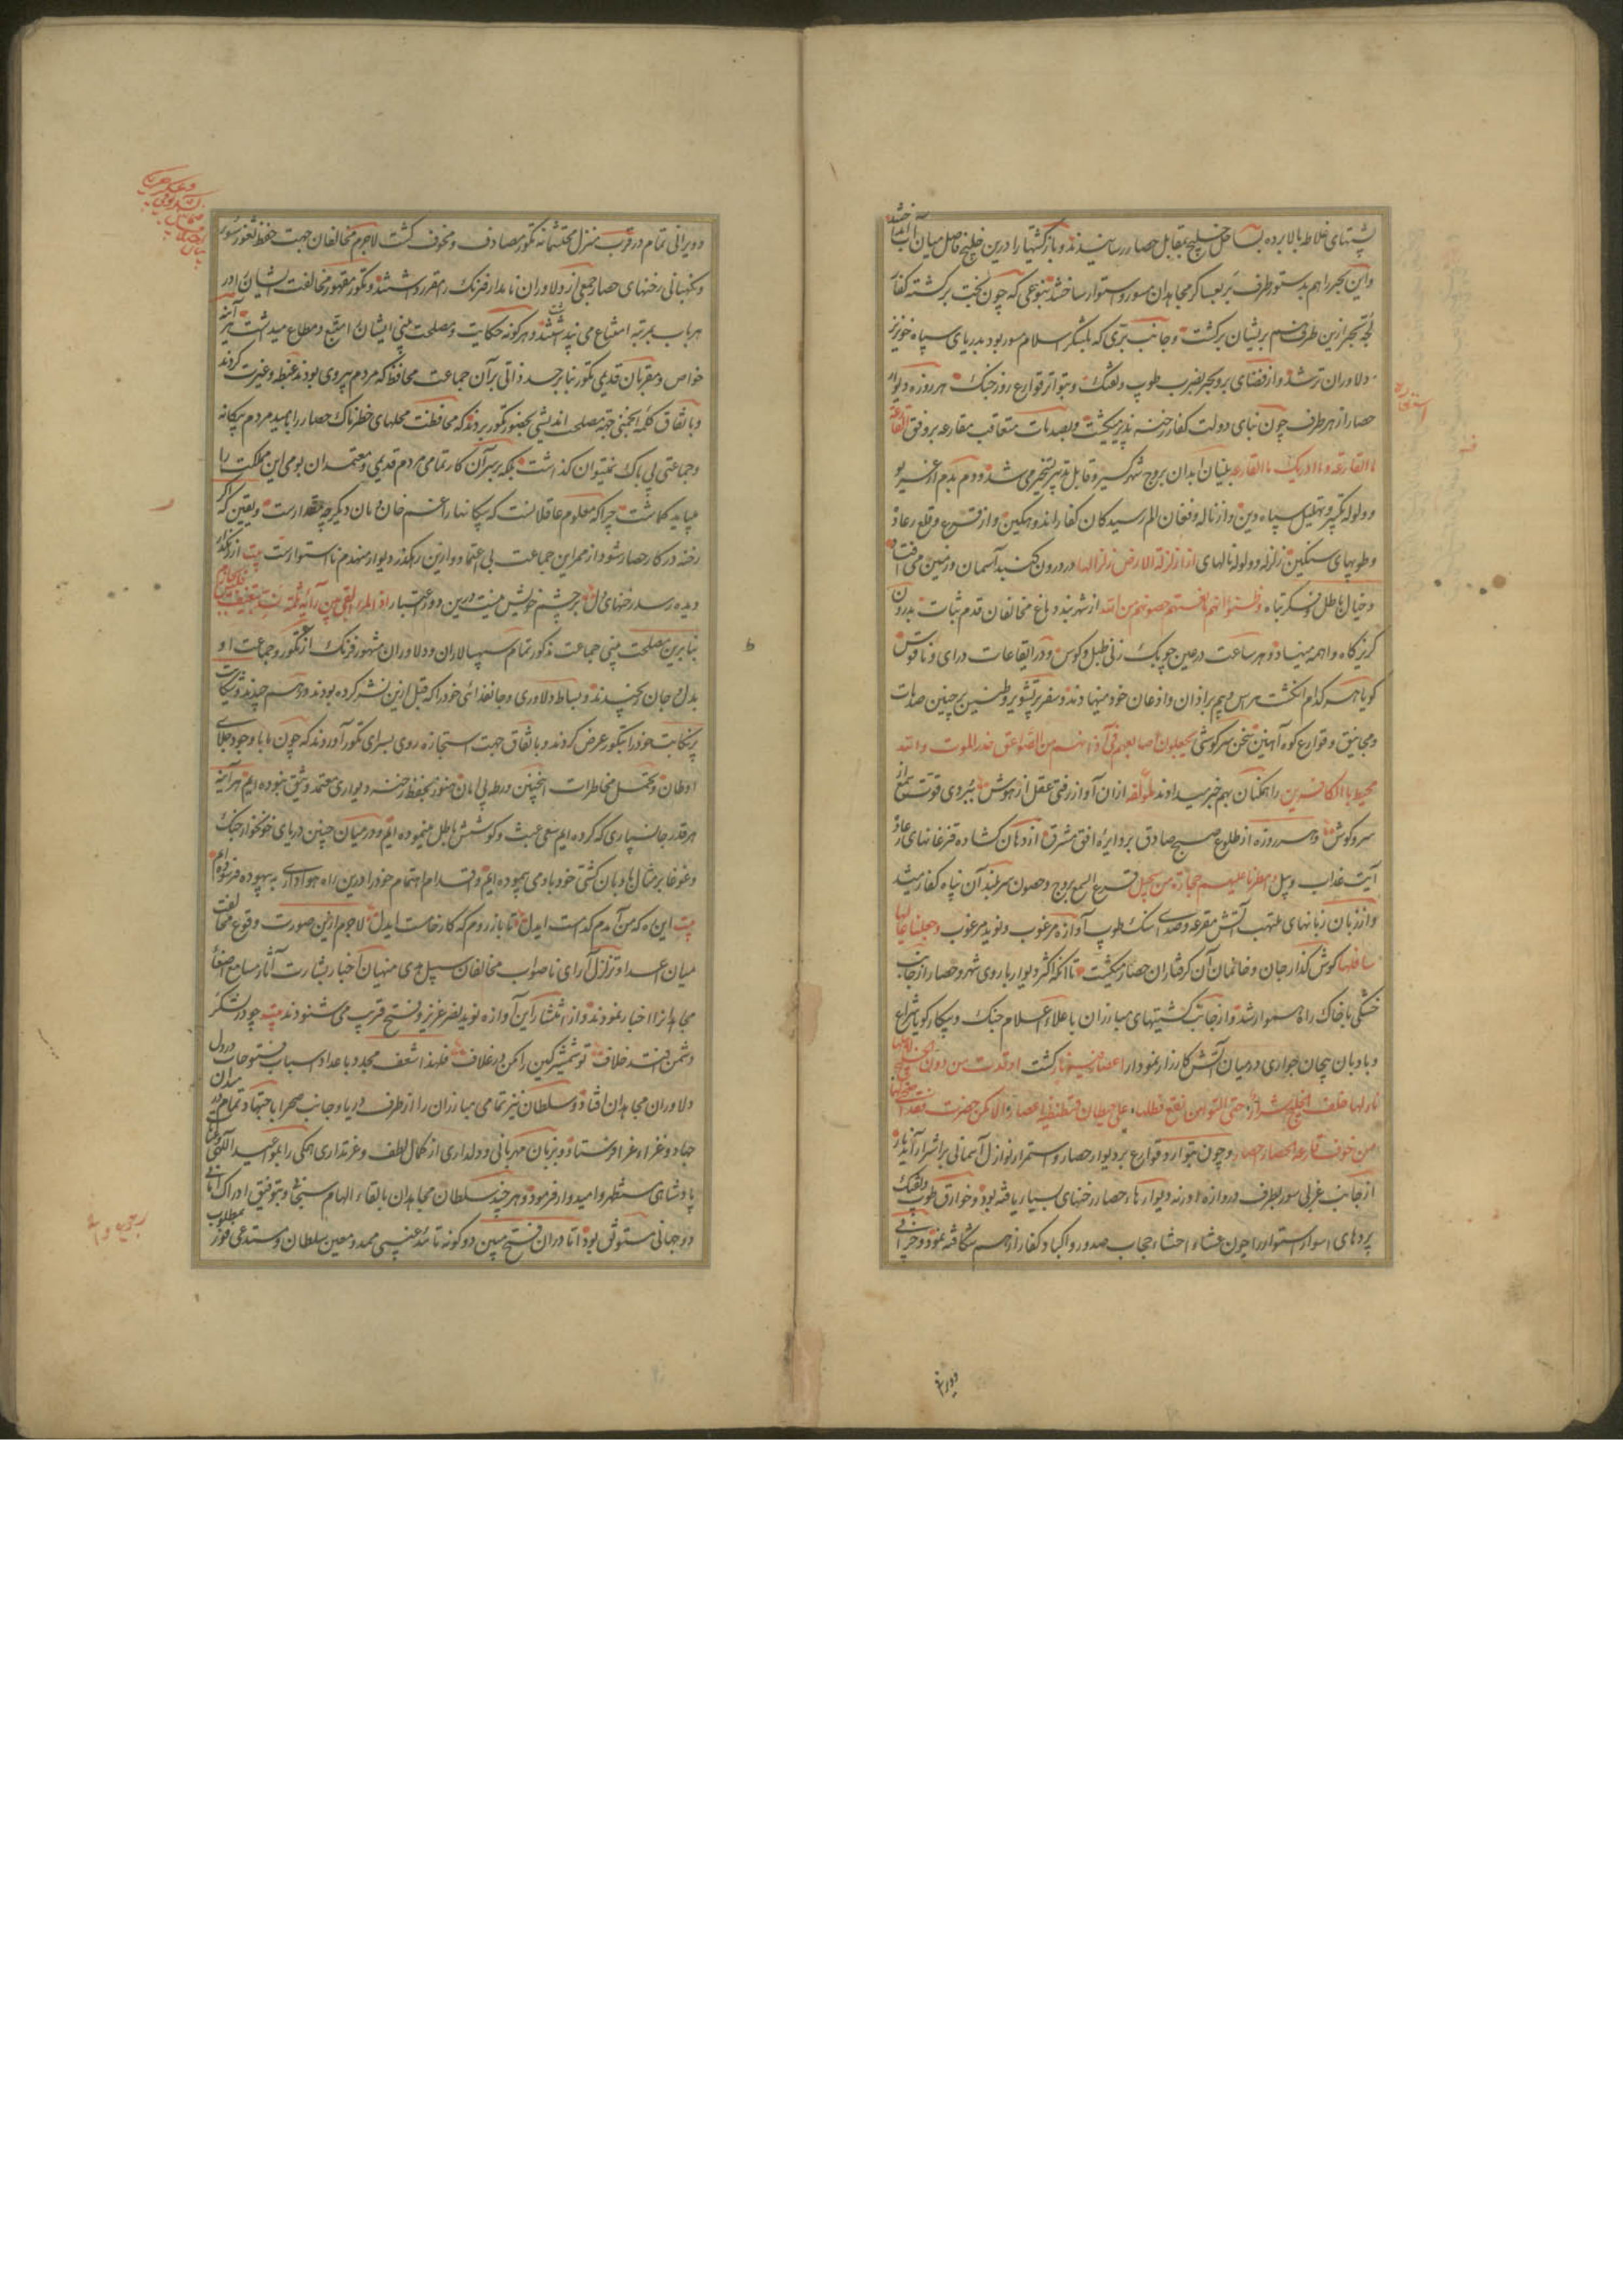 پشتهای غلاطه بالا برده بساحل خلیج بمقابل حصار رسانیدند و باز کشتیها را درین خلیج فاصل میان آب انداختند
و این بحر را هم بدستور طرف بر بعساکر مجاهدان مسور و استوار ساختند بنوعی که چون بخت برکشته کفار
لجه بحر ازین طرف هم بریشان برکشت و جانب بری که بلشکر اسلام مسور بود بدریای سپاه خونریز
دلاوران تر شد و از فضای بر و بحر بضرب طوپ و تفنک و بتواتر قوارع روز جنک هر روزه دیوار
حصار از هر طرف چون بنای دولت کفار رخنه پذیر میکشت و بصدمات متعاقب مقارعه بر وفق القارعة
ما القارعه و ما ادریک ما القارعه بنیان ابدان بروج شهر کسیر و قابل تدبیر تسخیر می شد و دم بدم از غریو
و ولوله تکبیر و تهلیل سپاه دین و از ناله و فغان الم رسیدکان کفار اندوهکین و از قرع و قلع رعاد
و طوپهای سنکین زلزله و ولوله نالهای اذا زلزلة الارض زلزالها در درون کنبد آسمان و زمین می افتاد
و خیال باطل و فکر تباه و ظنوا انهم مانعتهم حصونهم من الله از شهربند دماغ مخالفان قدم ثبات بدرون
کریزکاه واهمه مینهاد و هر ساعت در عین چوبک زنی طبل و کوس و در ایقاعات درای و ناقوس
کویا هر کدام انکشت هراس و بیم بر اذان و اذعان خود مینهادند و سفر پر تشویر و طنین پر چنین صدمات
و مجانیق و قوارع کوه آهنین سخن سرکوشی یجعلون اصابعهم فی آذانهم من الصواعق حذر الموت و الله
محیط بالکافرین را همکنان بهم خبر میدادند لمولفه ازان آواز رفتی عقل از هوش نبردی قوت سمع از
سر و کوش و هر روزه از طلوع صبح صادق بر دایره افق مشرق از دهان کشاده قزغانهای رعاد
آیت عذاب و یل امطرنا علیهم حجارة من سجیل قرع السمع بروج و حصون سربلند آن پناه کفار میشد
و از زبان زبانهای ملتهب آتش مقرعه و صدای سنک طوپ آوازه مرغوب و نوید مرعوب و جعلنا عالیها
سافلها کوش کذار جان و خانمان آن کرفتاران حصار میکشت تا آنکه اکثر دیوار باروی شهر و حصار از جانب
خشکی با خاک راه هموار شد و از جانب کشتیهای مبارزان با علاء اعلام جنک و پیکار کویا شراع
و بادبان پیچان جواری در میان آتش کارزار نمودار اعصار فیه نار کشت اوقدت من دون الخلیج
نارلها خلف الخلیج شرار حتی التوا من نقع
من خوف قارعة الحصار و چون بتواتر و قوارع بر دیوار حصار و استمرار نوازل آسمانی بر اشرار آن دیار
از جانب غربی سور بطرف دروازه ادرنه دیوارهاء حصار رخنهای بسیار یافته بود و خوارق طوپ و تفنک
پردهای اسوار استوار را چون غشاء احشاء حجاب صدور و اکباد کفار از هم شکافته نمود و خرابی
استعاره
ویرانی
و ویرانی تمام در قرب منزل محتشمانه تکور مصادف و مخوف کشت لاجرم مخالفان جهت حفظ ثغور سور
و نکهبانی رخنهای حصار جمعی از دلاوران نامدار فرنک را مقرر داشتند و تکور مقهور مخالفت ایشان را در
هر باب بمرتبه امتناع می پنداشتند و هر کونه حکایت و مصلحت بینی ایشان را متبع و مطاع میداشت هر آینه
خواص و مقربان قدیمی تکور بنابر حسد ذاتی بر آن جماعت محافظ که مردم بیروی بودند غبطه و غیرت کردند
و باتفاق کلمه انجمنی جهة مصلحت اندیشی بحضور تکور بردند که محافظت محلهای خطرناک حصار را بامید مردم بیکانه
و جماعتی بی باک نمیتوان کذاشت بلکه بر سر آن کار تمامی مردم قدیمی و معتمدان بومی این مملکت را
میباید کماشت چرا که معلوم عاقلانست که بیکانها را غم خان و مان دیکری چه مقدارست و یقین که اکر
رخنه در کار حصار شود از ممر این جماعت بی اعتماد و ازین رهکذر دیوار منهدم نا استوارست بیت
بنابرین مصلحت بینی جماعت مذکور تمام سپهسالاران و دلاوران مشهور فرنک از تکور و جماعت او
بدل و جان برنجیدند و بساط دلاوری و جانفدائی خود را که قبل ازین نشر کرده بودند در هم چیدند و شکایت
پر نکایت خود را بتکور عرض کردند و باتفاق جهت استجازه روی بسرای تکور آوردند که چون ما با وجود جلای
اوطان و تحمل مخاطرات اینچنین ورطه بی امان هنوز بحفظ رخنه دیواری معتمد و وثیق نبوده ایم هر آینه
هر قدر جانسپاری که کرده ایم سعی عبث و کوشش باطل مینموده ایم و در میان چنین دریای خونخوار جنک
و غوغا بر مثال بادبان کشتی خود باد می پیموده ایم و اقدام اهتمام خود را درین راه هواداری به بیهوده فرسوده ایم
بیت این ره که من آمدم کدامست ایدل تا باز روم که کار خامست ایدل لاجرم ازین صورت وقوع مخالفت
میان اعدا و تزلزل آرای ناصواب مخالفان سبیل هدی منهیان اخبار بشارت آثار بمسامع اصغاء
مجاهدانرا اخبار نمودند و از انتشار این آوازه نوید نصر عزیز و فتح قریب می شنودند بیت چو در لشکر
دشمن افتد خلاف تو شمشیر کین را مکن در غلاف فلهذا شعف مجدد باعداد اسباب فتوحات در دل
دلاوران مجاهدان افتاد و سلطان نیز تمامی مبارزان را از طرف دریا و جانب صحرا باجتهاد تمام در میدان
جهاد و غزاء غرا فرستاد و بزبان مهربانی و دلداری از کمال لطف و غزتداری همکی را بمواعید الهی و
پادشاهی مستظهر و امیدوار فرمود و هر چند سلطان مجاهدان بالقاء الهام سبحانی و بتوفیق ادراک امانی
دو جهانی مستوثق بود اما در آن فتح مبین دو کونه تائید غیبی ممد و معین سلطان و مستدعی فوز بمطلوب